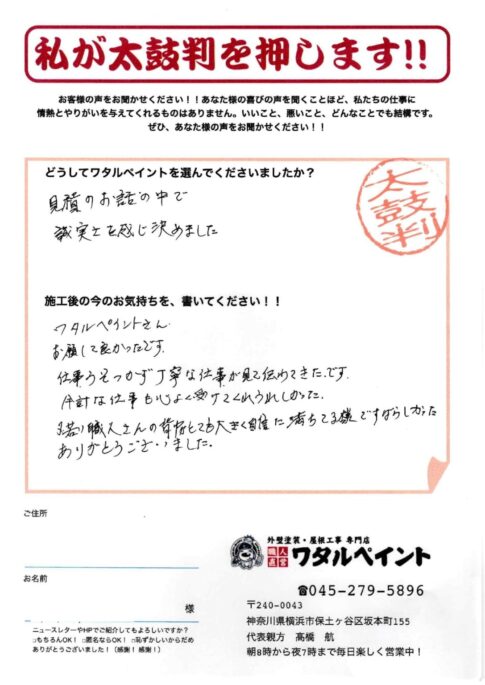 私が太鼓判を押します!!
お客様の声をお聞かせください！！あなた様の喜びの声を聞くことほど、私たちの仕事に
情熱とやりがいを与えてくれるものはありません。いいこと、悪いこと、どんなことでも結構です。
ぜひ、あなた様の声をお聞かせください！！
どうしてワタルペイントを選んでくださいましたか？
太鼓判
見積のお話の中で
誠実さを感じ決めました
施工後の今のお気持ちを、書いてください！！
ワタルペイントさん
お願して良かったです。
仕事うそつかず丁寧な仕事が見て伝わてきたです.
仕事も心よく受けてくれうれしかった.
職人さんの背格とても大きく自信に満ちてる様ですばらしかった
ありがとうございました.
ご住所
お名前
様
ニュースレターやHPでご紹介してもよろしいですか？
□もちろんOK！ □匿名ならOK！ □恥ずかしいからだめ
ありがとうございました！（感謝！感謝！）
外壁塗装・屋根工事 専門店
職人直営 ワタルペイント
☎045-279-5896
〒240-0043
神奈川県横浜市保土ヶ谷区坂本町155
代表親方 高橋 航
朝8時から夜7時まで毎日楽しく営業中！